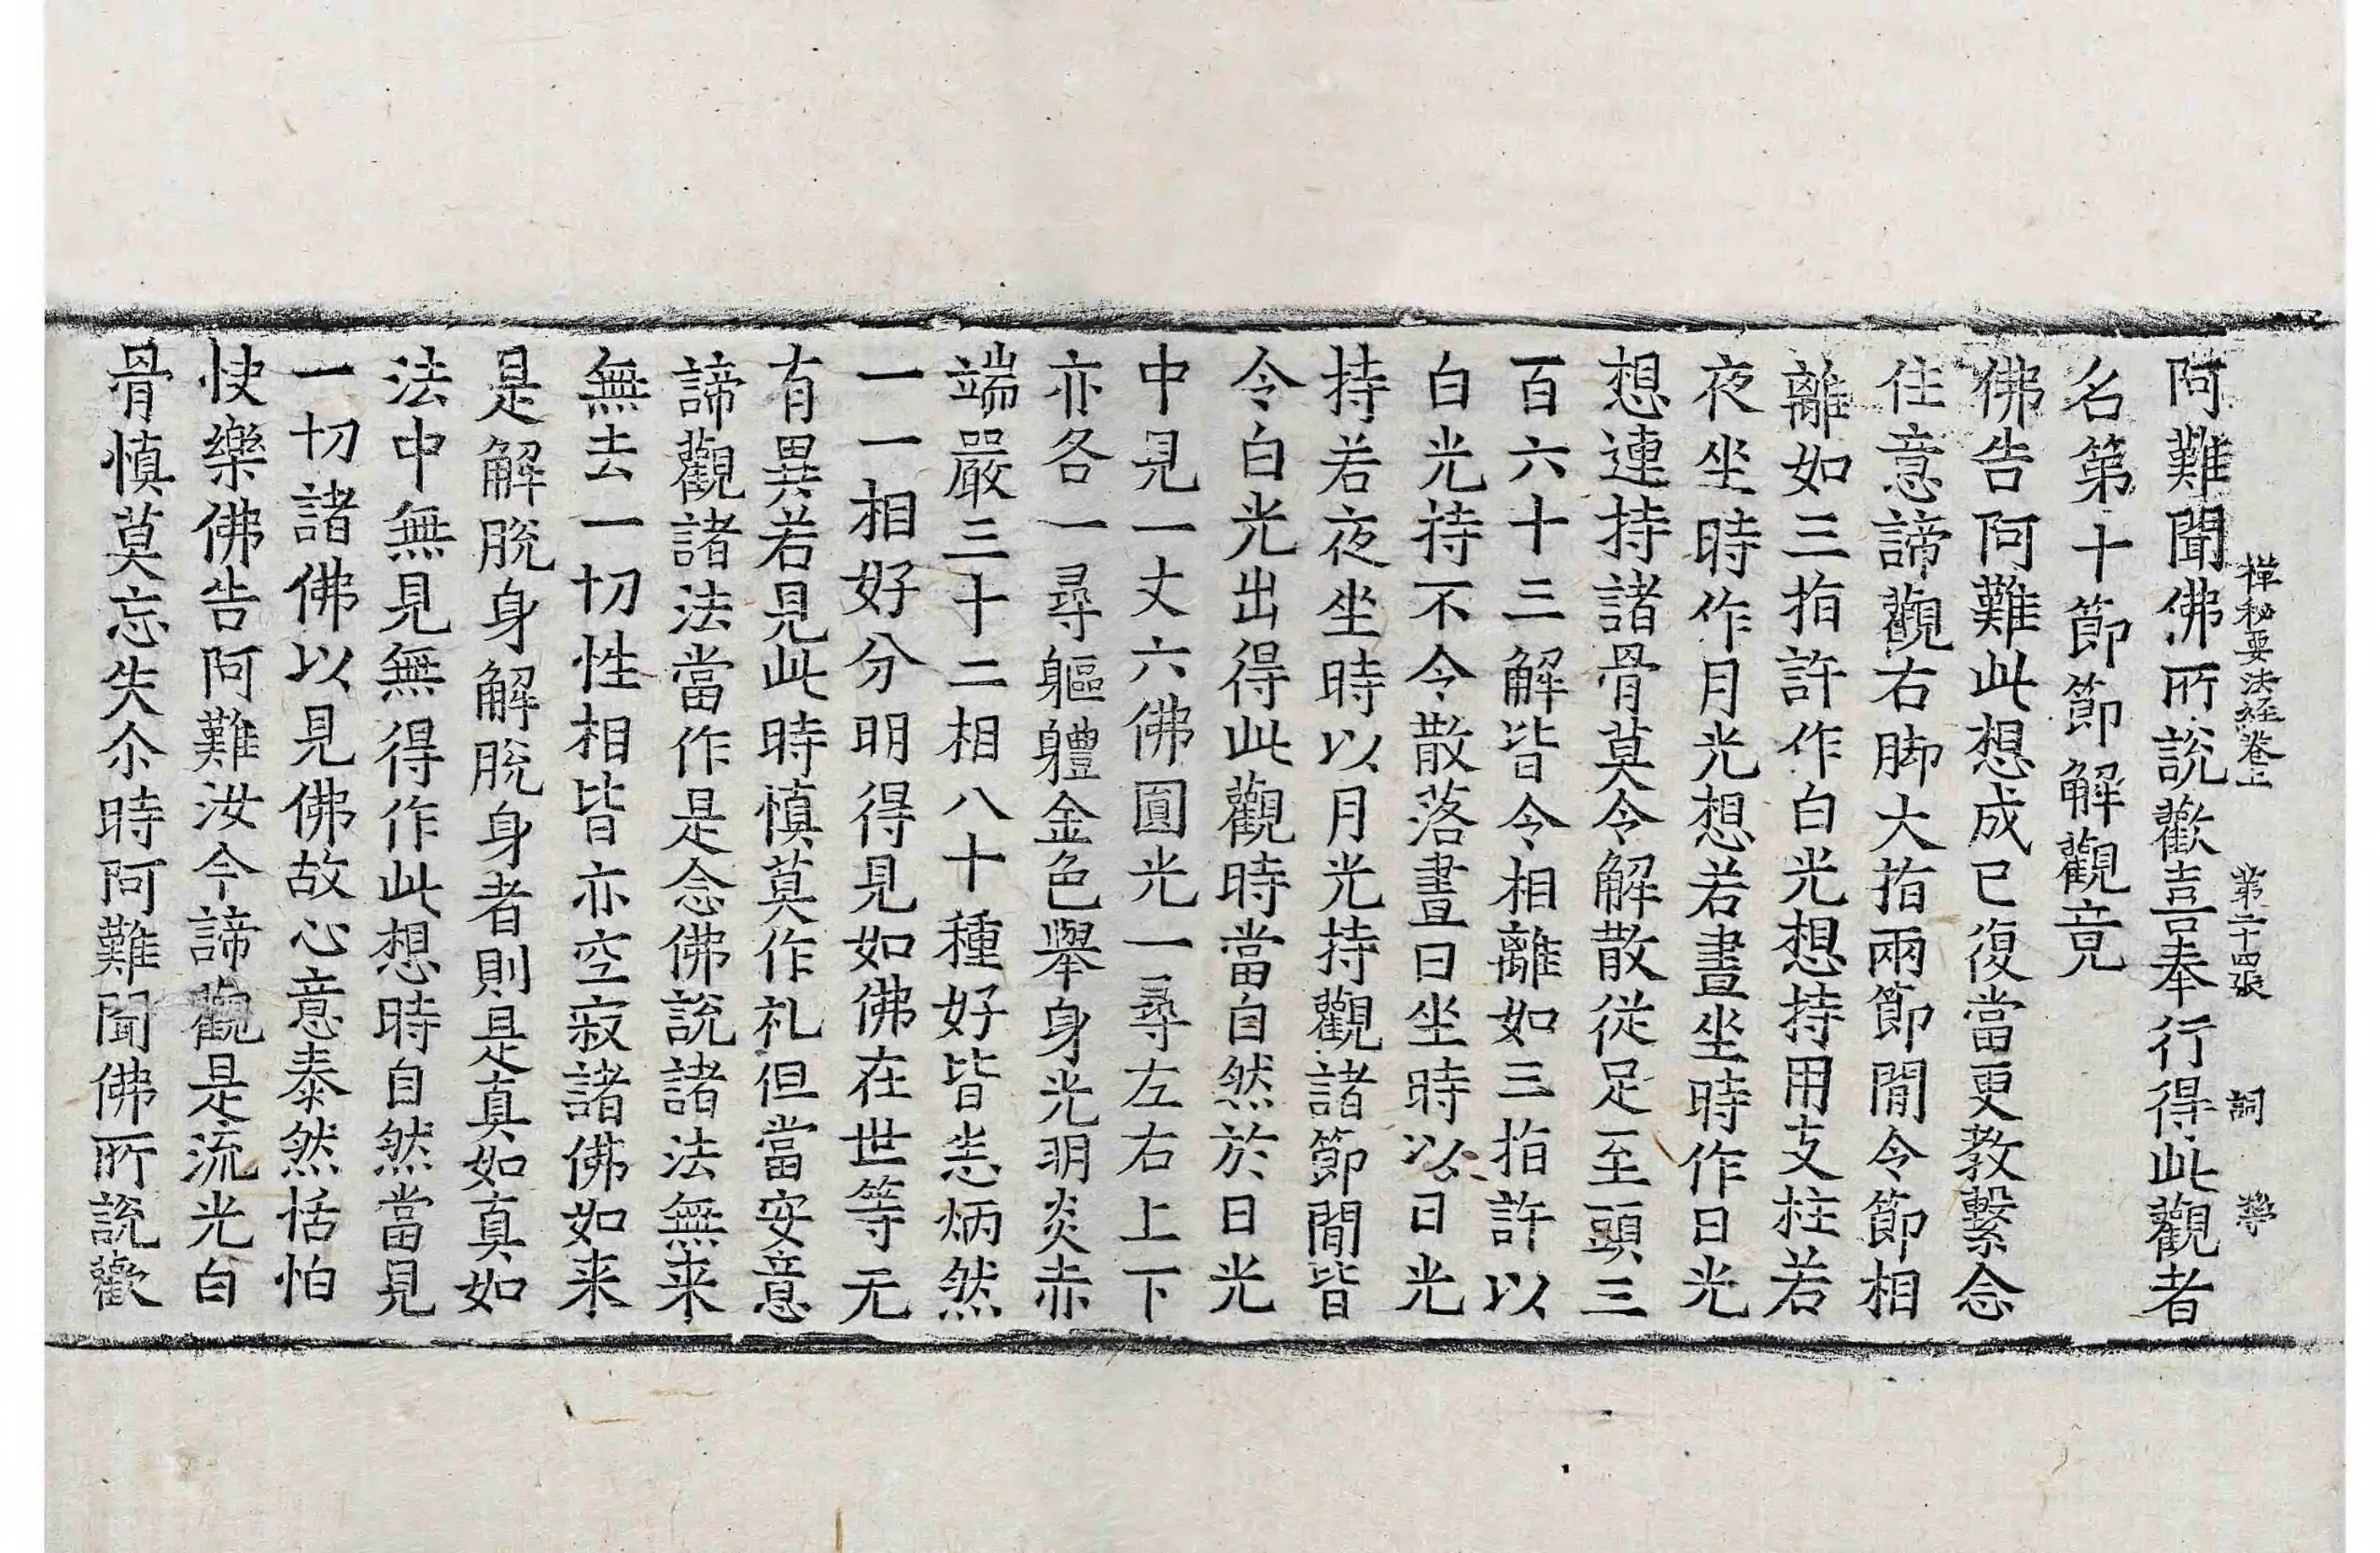 禪秘要法経卷上 第二十四張 詞
阿難聞佛所說歡喜奉行得此觀者
名第十節節解觀竟
佛告阿難此想成已復當更教繫念
住意諦觀右脚大指兩節間令節相
離如三指許作白光想持用支拄若
夜坐時作月光想若晝坐時作日光
想連持諸骨莫令解散從足至頭三
百六十三解皆令相離如三指許以
白光持不令散落晝日坐時以日光
持若夜坐時以月光持觀諸節間皆
令白光出得此觀時當自然於日光
中見一丈六佛圓光一尋左右上下
亦各一尋軀軆金色舉身光明炎赤
端嚴三十二相八十種好皆悉炳然
一一相好分明得見如佛在世等无
有異若見此時慎莫作礼但當安意
諦觀諸法當作是念佛說諸法無来
無去一切性相皆亦空寂諸佛如来
是解脫身解脫身者則是真如真如
法中無見無得作此想時自然當見
一切諸佛以見佛故心意泰然恬怕
快樂佛告阿難汝今諦觀是流光白
骨慎莫忘失尒時阿難聞佛所說歡